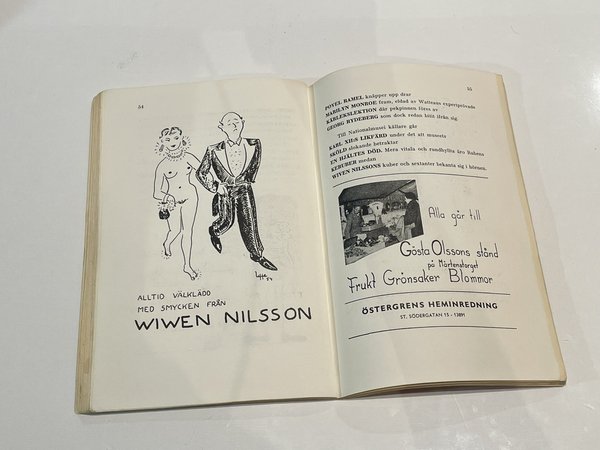 54
Lyse 54
ALLTID VÄLKLÄDD
MED SMYCKEN FRÅN
WIWEN NILSSON
55
POVEL RAMEL knäpper upp drar
MARILYN MONROE fram, eldad av Watteaus expertprövade
KÄRLEKSLEKTION där pekpinnen föres av
GEORG RYDEBERG som dock redan kört ifrån sig.
Till Nationalmusei källare går
KARL XII:S LIKFÄRD under det att museets
SKÖLD slokande betraktar
EN HJÄLTES DÖD. Mera vitala och rundhyllta äro Rubens
KERUBER medan
WIWEN NILSSONS kuber och sextanter bekanta sig i hörnen.
Alla går till
Gösta Olssons stånd
på Mårtenstorget
Frukt Grönsaker Blommor
ÖSTERGRENS HEMINREDNING
ST. SÖDERGATAN 15 - 13891